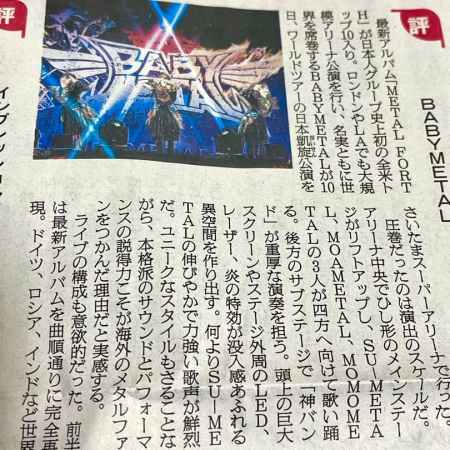 評
BABYMETAL
最新アルバム「METAL FORT
H」が日本人グループ史上初の全米ト
ップ10入り。ロンドンやLAでも大規
模アリーナ公演を行い、名実ともに世
界を席巻するBABYMETALが10
日、ワールドツアーの日本凱旋公演を
BABY
METAL
さいたまスーパーアリーナで行った。
圧巻だったのは演出のスケールだ。
アリーナ中央でひし形のメインステー
ジがリフトアップし、SU-META
L、MOAMETAL、MOMOME
TALの3人が四方へ向けて歌い踊
る。後方のサブステージで「神バン
ド」が重厚な演奏を担う。頭上の巨大
スクリーンやステージ外周のLED、
レーザー、炎の特効が没入感あふれる
異空間を作り出す。何よりSU-ME
TALの伸びやかで力強い歌声が鮮烈
だ。ユニークなスタイルもさることな
がら、本格派のサウンドとパフォーマ
ンスの説得力こそが海外のメタルファ
ンをつかんだ理由だと実感する。
ライブの構成も意欲的だった。前半
は最新アルバムを曲順通りに完全再
現。ドイツ、ロシア、インドなど世界
評